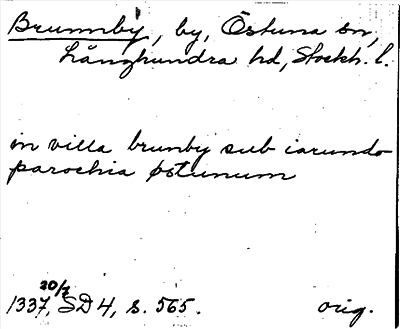 Brunnby, by, Östuna sn,
Långhundra hd, Stockh. l.
in villa brunby sub iarundo
parochia østunum
20/7
1337, SD 4, s. 565. orig.